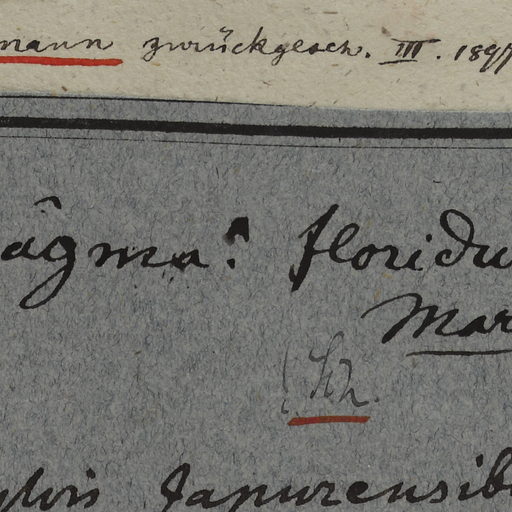 mann zurückgesch. III. 1897
âgma? floridu
Mar
ylvis Japurensib